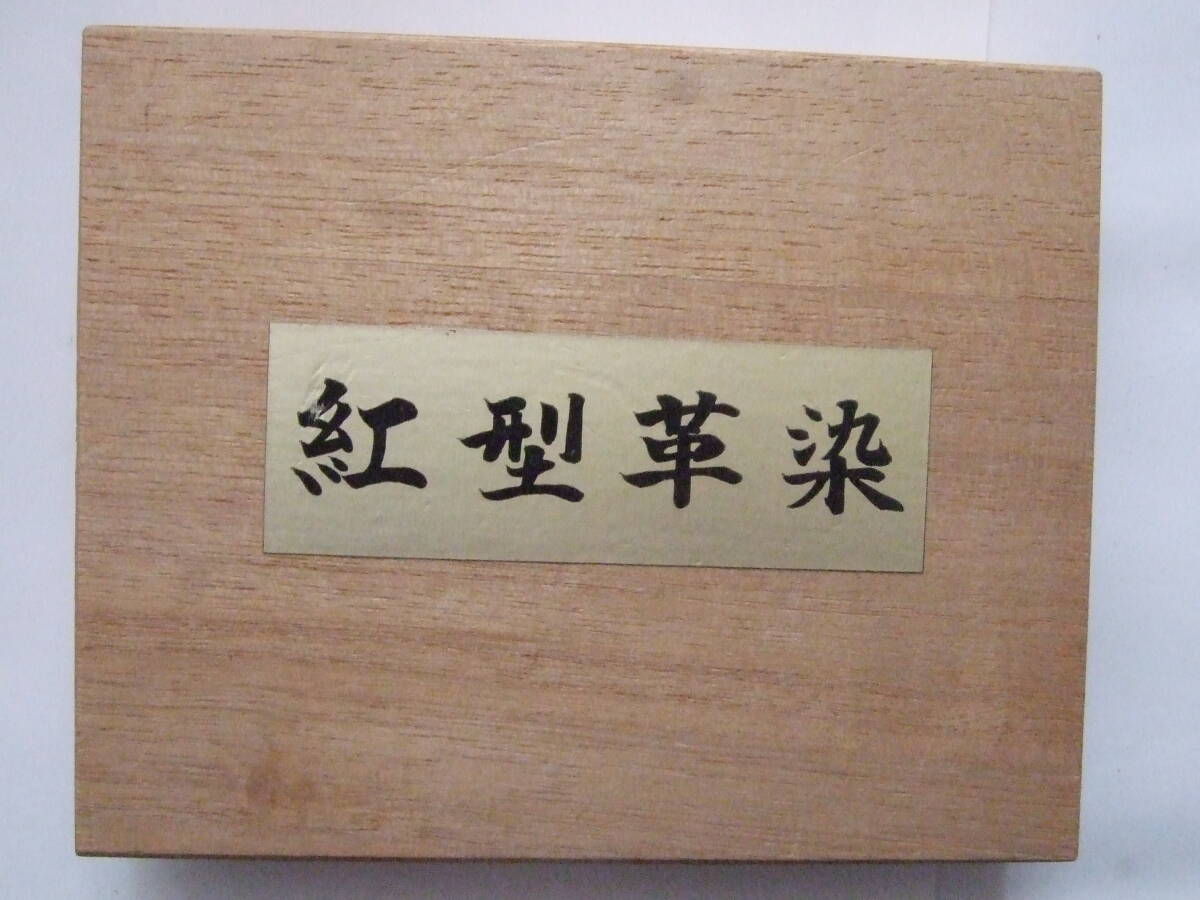 紅型革染